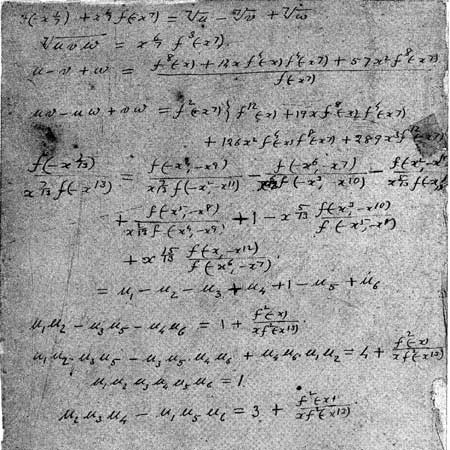 (-x^{1/7}) + x^{2/7} f(-x^7) = \sqrt[7]{u} - \sqrt[7]{v} + \sqrt[7]{w}
\sqrt[7]{uvw} = x^{6/7} f^3(-x^7).
u - v + w = \frac{f^8(-x) + 14x f^4(-x) f^4(-x^7) + 57x^2 f^8(-x^7)}{f(-x^7)}
uv - uw + vw = f^2(-x^7) { f^{12}(-x) + 19x f^8(-x) f^4(-x^7)
+ 126x^2 f^4(-x) f^8(-x^7) + 289x^3 f^{12}(-x^7)
\frac{f(-x^{1/13})}{x^{7/13} f(-x^{13})} = \frac{f(-x^4, -x^9)}{x^{7/13} f(-x^2, -x^{11})} - \frac{f(-x^6, -x^7)}{x^{6/13} f(-x^3, -x^{10})} - \frac{f(-x^2, -x}{x^{5/13} f(-x}
+ \frac{f(-x^5, -x^8)}{x^{2/13} f(-x^4, -x^9)} + 1 - x^{5/13} \frac{f(-x^3, -x^{10})}{f(-x^5, -x^8)}
+ x^{15/13} \frac{f(-x, -x^{12})}{f(-x^6, -x^7)}.
= u_1 - u_2 - u_3 + u_4 + 1 - u_5 + u_6
u_1u_2 - u_3u_5 - u_4u_6 = 1 + \frac{f^2(-x)}{x f^2(-x^{13})}.
u_1u_2·u_3u_5 - u_3u_5·u_4u_6 + u_4u_6·u_1u_2 = 4 + \frac{f^2(-x)}{x f^2(-x^{13})}
u_1u_2u_3u_4u_5u_6 = 1.
u_2u_3u_4 - u_1u_5u_6 = 3 + \frac{f^2(-x)}{x f^2(-x^{13})}.